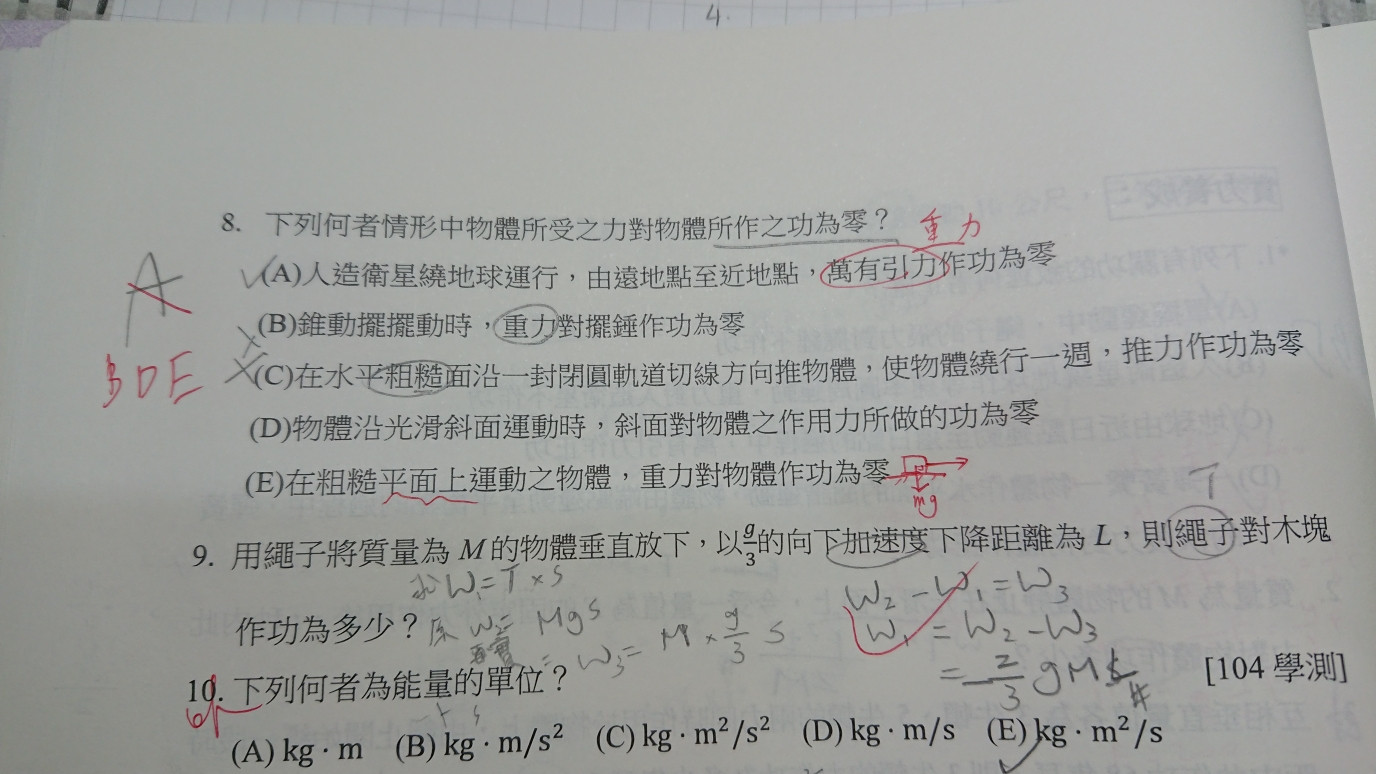 4.
8. 下列何者情形中物體所受之力對物體所作之功為零？
重力
(A)人造衛星繞地球運行，由遠地點至近地點，萬有引力作功為零
A
(B)錐動擺擺動時，重力對擺錘作功為零
BDE
(C)在水平粗糙面沿一封閉圓軌道切線方向推物體，使物體繞行一週，推力作功為零
(D)物體沿光滑斜面運動時，斜面對物體之作用力所做的功為零
(E)在粗糙平面上運動之物體，重力對物體作功為零
mg
T
9. 用繩子將質量為 M 的物體垂直放下，以 g/3 的向下加速度下降距離為 L，則繩子對木塊
求 W₁=T×S
W₂-W₁=W₃
作功為多少？
原 W₂= Mgs
W₁=W₂-W₃
= W₃= M×g/3 S
= 2/3 gM
10. 下列何者為能量的單位？ [104 學測]
(A) kg · m (B) kg · m/s² (C) kg · m²/s² (D) kg · m/s (E) kg · m²/s